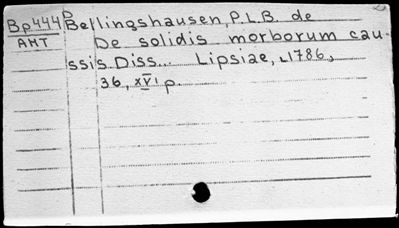 Bp444 Bellingshausen, P.L.B. de
AHT De solidis morborum cau-
ssis. Diss... Lipsiae, 1786,
36, XVI p.